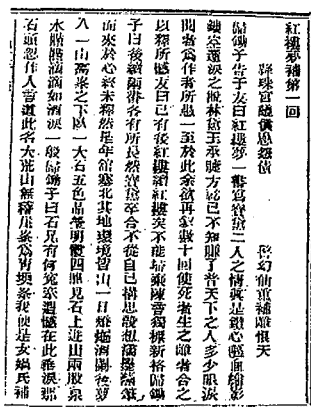 紅樓夢補第一回
絳珠宮議償恩怨債 警幻仙重補離恨天
歸鋤子告于友曰紅樓夢一書寫寶黛二人之情真是鏤心嘔血繪影
鏤空還淚之說林黛玉承睫方乾已不知賺了普天下之人多少眼淚
閱者為作者所愚一至於此余欲再敘數十回使死者生之離者合之
以釋所憾友曰已有後紅樓續紅樓矣不能歸棄陳言獨標新格歸鋤
子曰後續兩書各有所長然寶黛卒合不從自己搆思設想滿盤
而來於心終未釋然是年館塞北其地環境皆山一日燈炧酒闌後夢
入一山嵩峯之下臥一大石五色晶瑩明徹四照見石上迸出兩股泉
水點點滴滴如酒淚一般歸鋤子曰石兄有何冤忿遺憾在此垂淚那
石頭忽作人言道此名大荒山無稽崖峯為靑埂峯我便是女媧氏補